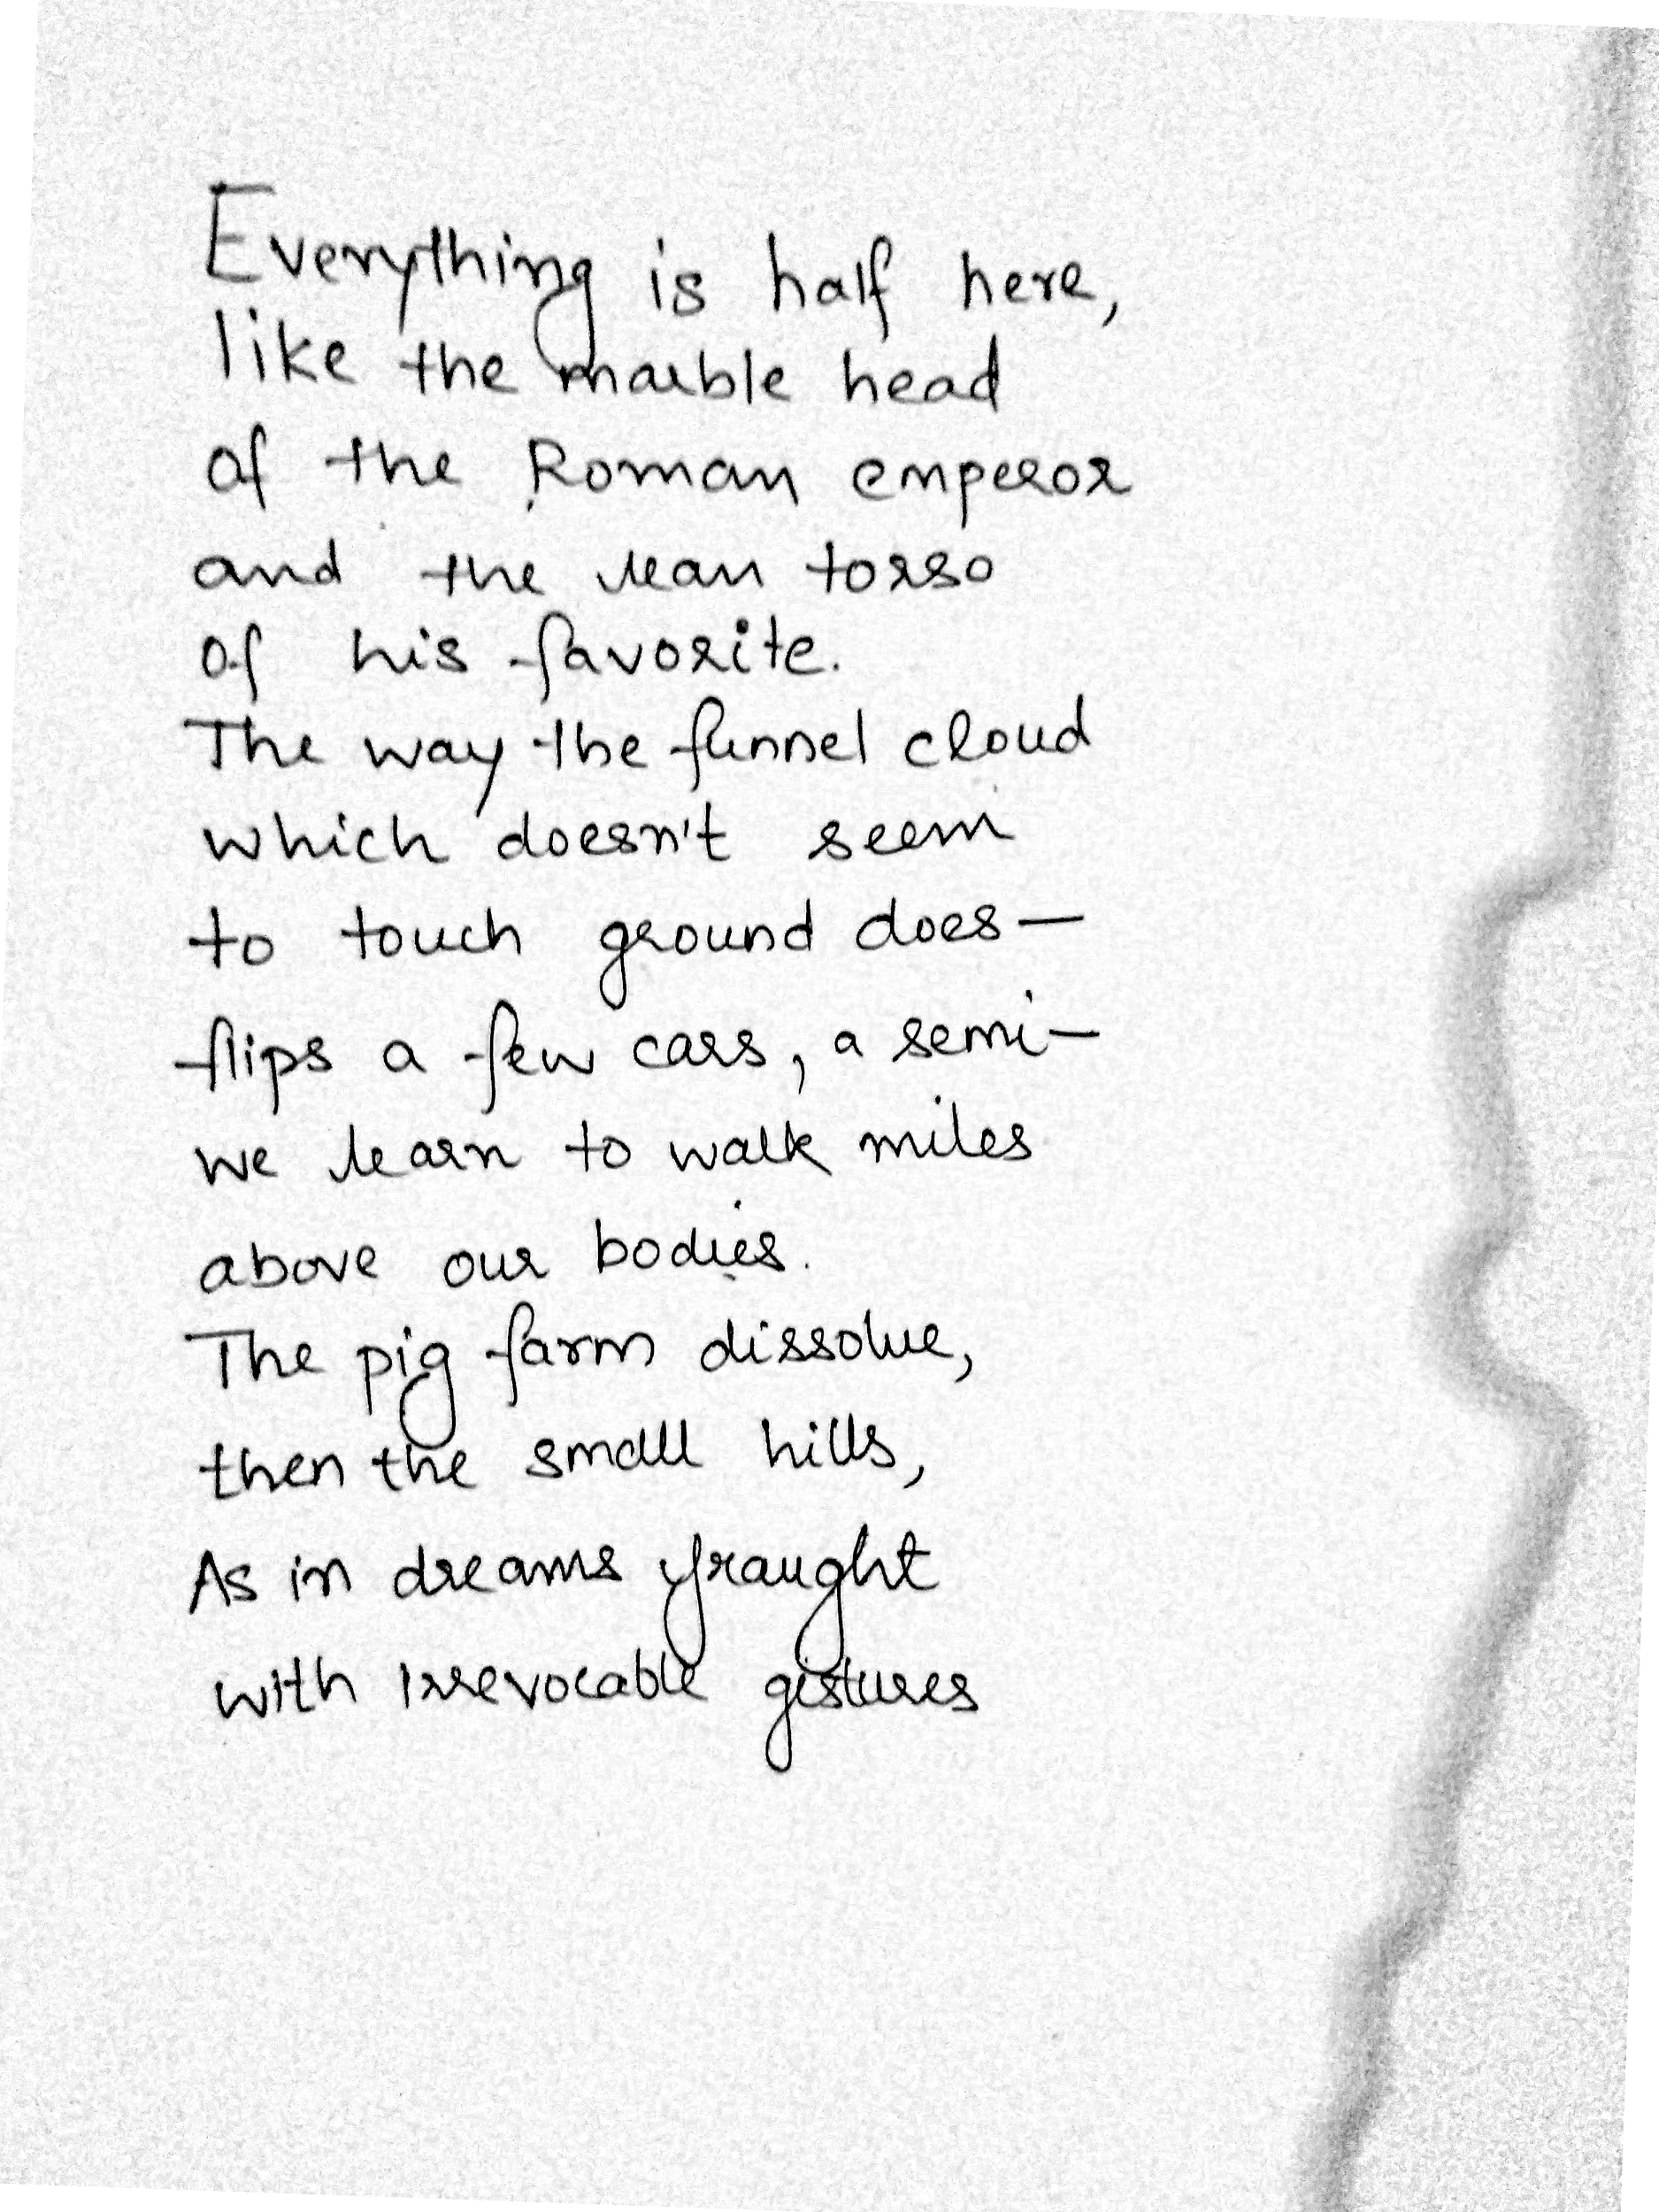 Everything is half here,
like the marble head
of the Roman emperor
and the lean torso
of his favorite.
The way the funnel cloud
which doesn't seem
to touch ground does—
flips a few cars, a semi—
we learn to walk miles
above our bodies.
The pig farm dissolve,
then the small hills,
As in dreams fraught
with irrevocable gistures